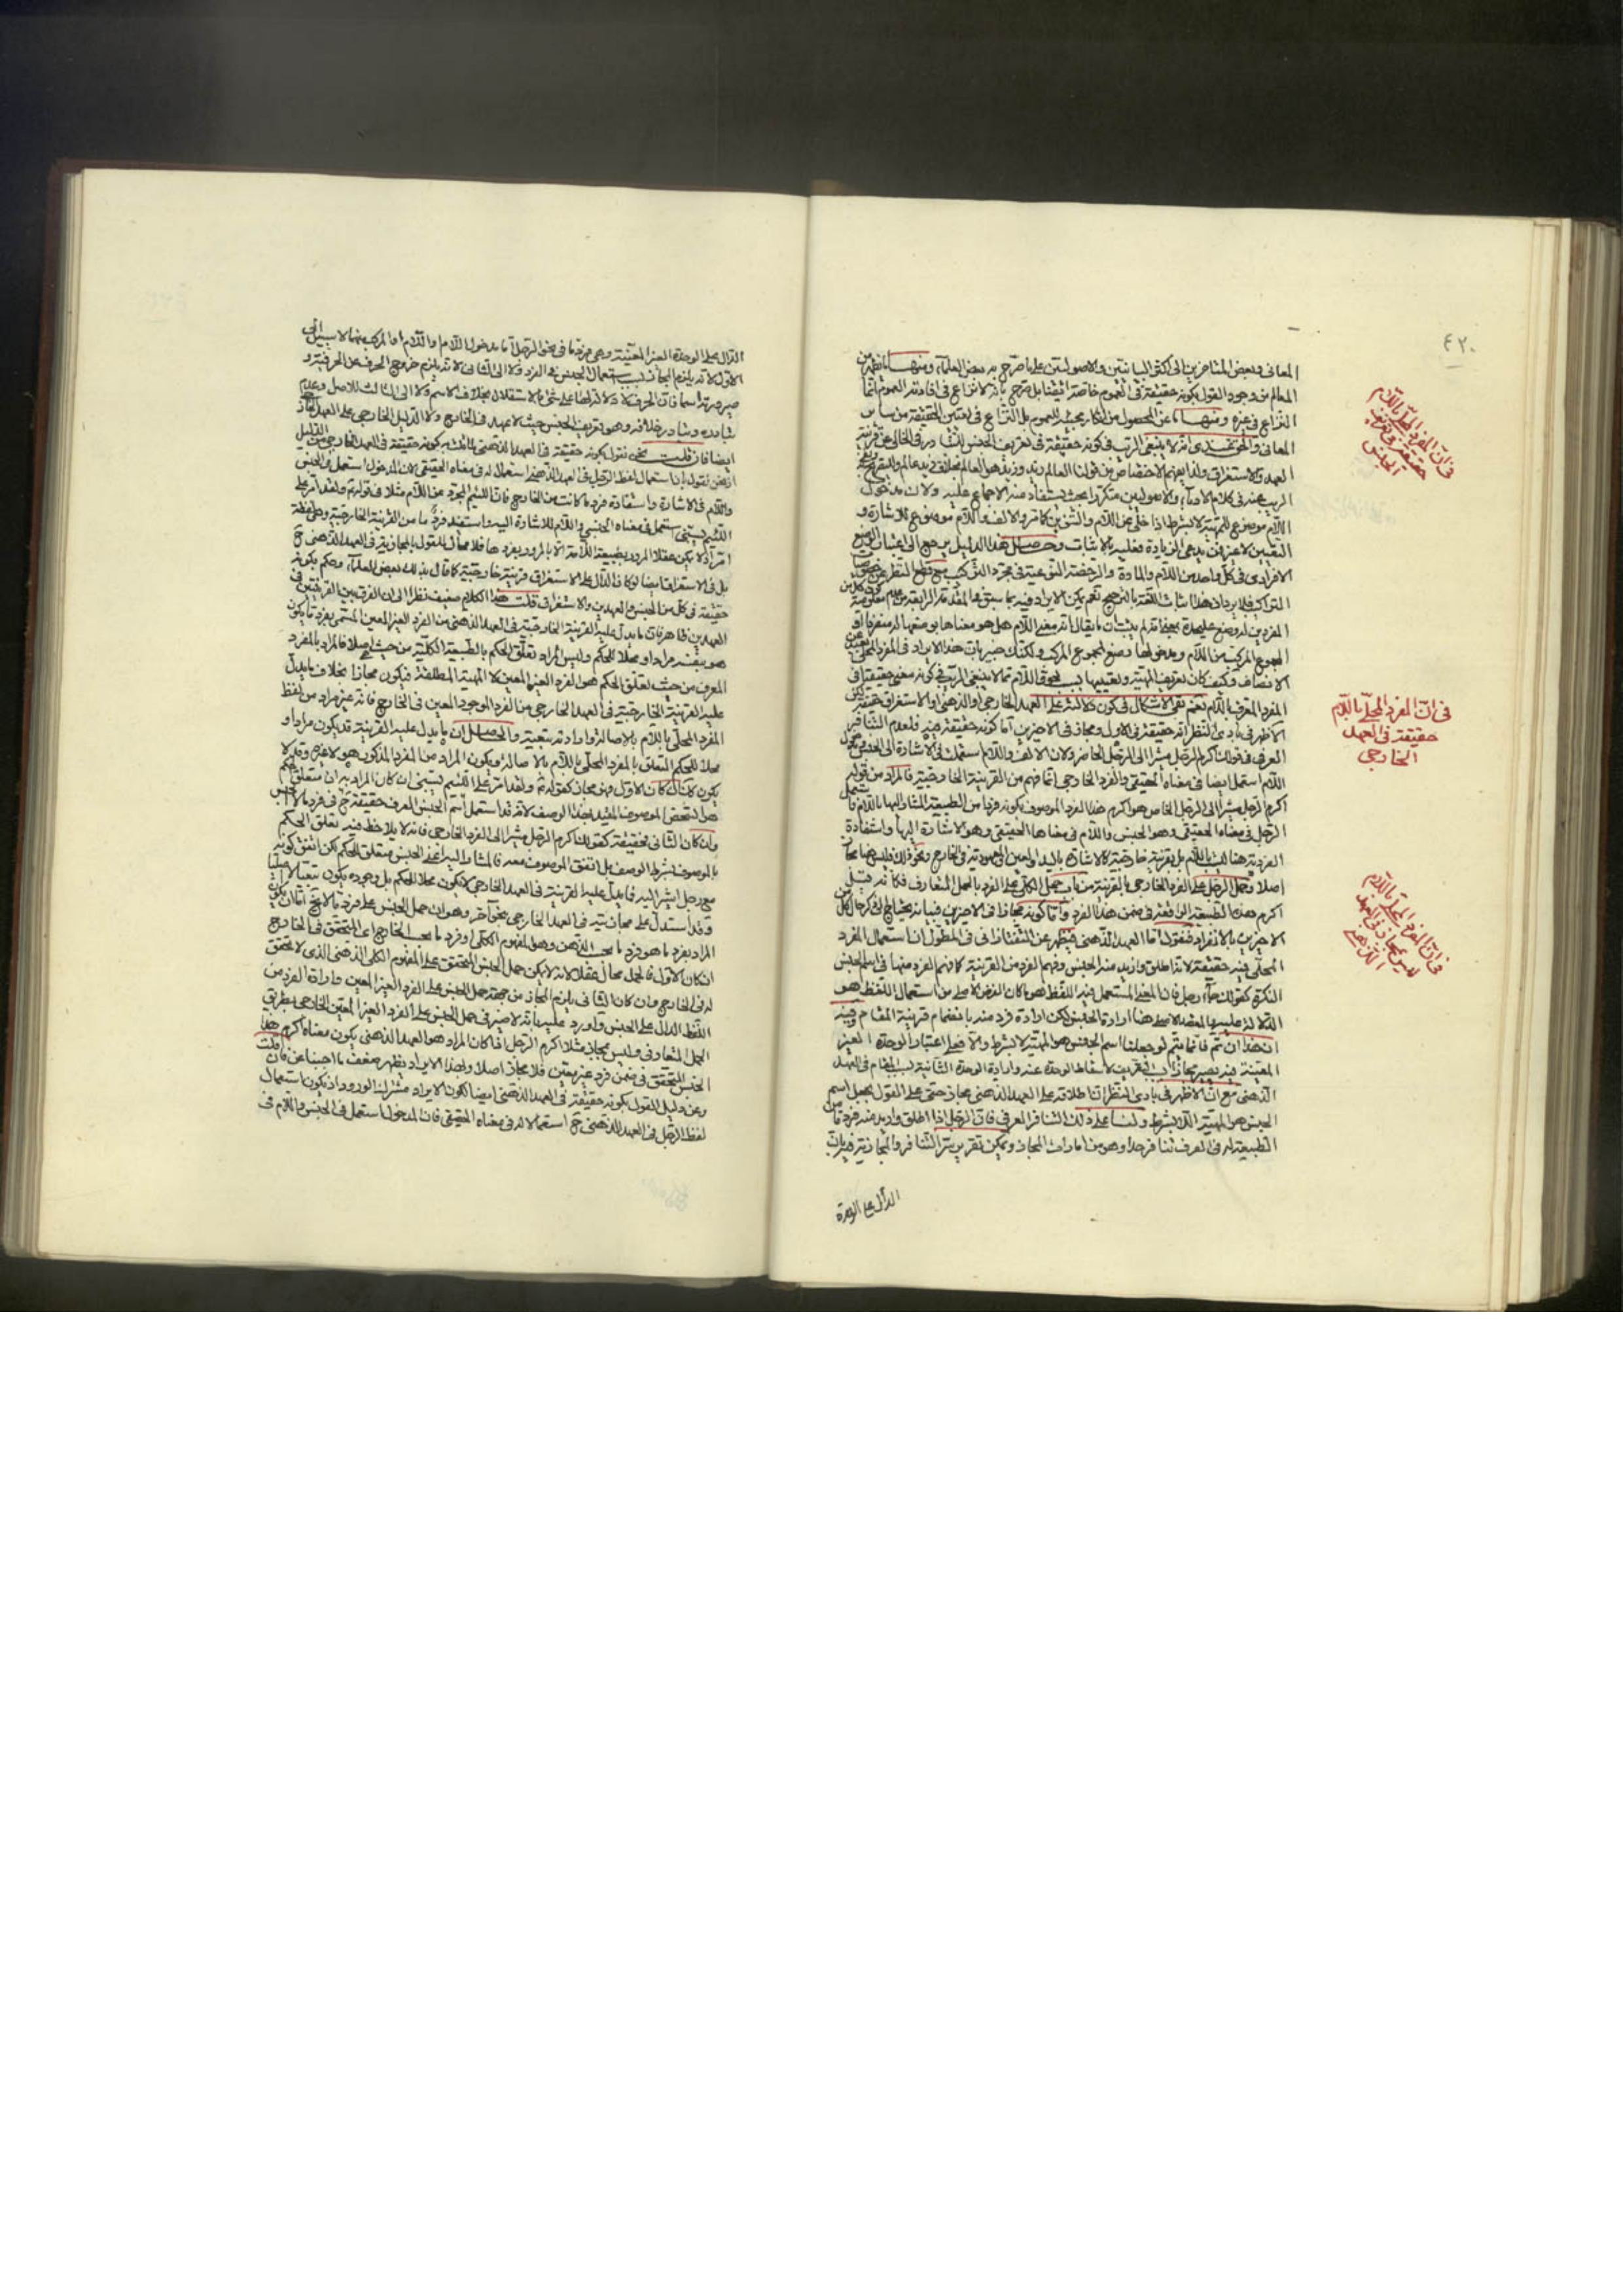 ٤٢٠
المعانى وبعض المتاخرين الى اكثر البيانيين والاصوليين على ما صرح به بعض العلماء ومنها ما يظهر من
المعالم من وجود القول بكونه حقيقة فى العموم خاصة
النزاع فى غيره ومنها عن المحصول من انكار مجيئه للعموم بل النزاع فى تعيين الحقيقة من سائر
المعانى والحق عندى انه لا ينبغى الريب فى كونه حقيقة فى تعريف الجنس للتبادر فى الخالى عن قرينة
العهد والاستغراق ولذا يفهم الاختصاص من قولنا العالم زيد وزيد هو العالم بخلاف زيد عالم
اللام موضوع للمهية لا بشرط اذا خلى عن اللام والتنوين كما مر والالف واللام موضوع للاشارة و
التعيين لا غير فمن يدعى الزيادة فعليه بالاثبات وحاصل هذا الدليل يرجع الى اعتبار الوضع
الافرادى فى كل واحد من اللام والمادة والرخصة النوعية فى مجرد التركيب مع قطع النظر عن خصوص
المجموع المركب من اللام ومدخولها وضع المجموع المركب ولكنك خبير بان هذا الايراد فى المفرد المحلى
الانصاف وكيف كان تعريف المهية وتعيينها بسبب لحوق اللام مما لا ينبغى الريب فى كونه معنى حقيقيا فى
المفرد المعرف باللام نعم بقى الاشكال فى كون دلالته على العهد الخارجى او الذهنى او الاستغراق حقيقة لكن
الاظهر فى بادى النظر انه حقيقة فى الاول ومجاز فى الاخيرين اما كونه حقيقة فيه فلعدم التنافر
العرفى فى قولك اكرم الرجل مشيرا الى الرجل الحاضر ولان الالف واللام استعملت فى الاشارة الى الجنس
اللام استعمل ايضا فى معناه الحقيقى والفرد الخارجى انما فهم من القرينة الخارجية فالمراد من قوله
اكرم الرجل مشيرا الى الرجل الخاص هو اكرم هذا الفرد الموصوف بكونه فردا من الطبيعة المشار اليها باللام
الرجل فى معناه الحقيقى وهو الجنس واللام فى معناها الحقيقى وهو الاشارة اليها واستفادة
الفردية هنا ليست باللام بل بقرينة خارجية كالاشارة باليد او العين او المعهودية فى الخارج ونحو ذلك فليس هنا مجاز
اصلا وحمل الرجل على الفرد الخارجى بالقرينة من باب حمل الكلى على الفرد بالحمل المتعارف فكانه قيل
اكرم هذه الطبيعة الواقعة فى ضمن هذا الفرد واما كونه مجازا فى الاخيرين فبيانه يحتاج الى ذكر حال كل من
الاخيرين بالانفراد فنقول اما العهد الذهنى فيظهر عن التفتازانى فى المطول ان استعمال المفرد
المحلى فيه حقيقة لانه اطلق واريد منه الجنس وفهم الفرد من القرينة كما فهم الفرد منها فى اسم الجنس
النكرة كقولك جاء رجل فان المعنى المستعمل فيه اللفظ هو ما كان الغرض الاصلى من استعمال اللفظ هو
الدلالة عليه والمقصد الاصلى هنا ارادة الجنس لكن ارادة فرد منه بانضمام قرينة المقام وفيه
ان هذا ان تم فانما يتم لو جعلنا اسم الجنس هو المهية لا بشرط والا فعلى اعتبار الوحدة الغير
المعينة فيه يصير مجازا
الذهنى مع ان الاظهر فى بادى النظر ان اطلاقه على العهد الذهنى مجاز حتى على القول بجعل اسم
الجنس هو المهية اللابشرط ولنا على ذلك التنافر العرفى فان الرجل اذا اطلق واريد منه فرد ما من
الطبيعة له فى العرف تنافر جدا وهو من امارات المجاز ويمكن تقرير سر التنافر والمجازية فيه بان
الدال على الوحدة
فى ان المفرد المحلى باللام
حقيقة فى تعريف
الجنس
فى ان المفرد المحلى باللام
حقيقة فى العهد
الخارجى
فى ان المفرد المحلى باللام
مجاز فى العهد
الذهنى
الدال على الوحدة الغير المعينة وهى فرد ما فى نحو الرجل اما مدخول اللام واللام او المركب منهما لا سبيل الى
الاول لانه يلزم المجاز بسبب استعمال الجنس فى الفرد ولا الى الثانى لانه يلزم خروج الحرف عن الحرفية و
صيرورته اسما فان الحرف لا دلالة لها على شىء بالاستقلال بخلاف الاسم ولا الى الثالث للاصل وعدم
تبادره وتبادر خلافه وهو تعريف الجنس حيث لا عهد فى الخارج ولا الدليل الخارجى على العهد
ايضا فان قلت نحن نقول بكونه حقيقة فى العهد الذهنى
اذ نحن نقول بان استعمال لفظ الرجل فى العهد الذهنى استعمال له فى معناه الحقيقى لان المدخول استعمل فى الجنس
واللام فى الاشارة واستفادة فرد ما كانت من الخارج فان اللئيم المجرد عن اللام مثلا فى قولهم ولقد امر على
اللئيم يسبنى استعمل فى معناه الجنسى واللام للاشارة اليه واستفيد فرد ما من القرينة الخارجية وهى لفظة
امر اذ لا يمكن عقلا المرور بطبيعة اللئيم الا بالمرور بفردها فلا مجال للقول بالمجازية فى العهد الذهنى ح
بل فى الاستغراق ايضا لو كان الدال على الاستغراق قرينة خارجية كما قال بذلك بعض العلماء وحكم بكونه
حقيقة فى كل من الجنس والعهدين والاستغراق قلت هذا الكلام ضعيف نظرا الى ان الفرق بين القرينتين فى
العهدين ظاهر فان ما يدل عليه القرينة الخارجية فى العهد الذهنى من الفرد الغير المعين المسمى بفرد ما يكون
هو بنفسه مرادا ومحلا للحكم وليس المراد تعلق الحكم بالطبيعة الكلية من حيث هى اصلا فالمراد بالمفرد
المعرف من حيث تعلق الحكم هو الفرد الغير المعين لا المهية المطلقة فيكون مجازا بخلاف ما يدل
عليه القرينة الخارجية فى العهد الخارجى من الفرد الموجود المعين فى الخارج فانه غير مراد من لفظ
المفرد المحلى باللام بالاصالة وارادته بتبعية والحاصل ان ما يدل عليه القرينة قد يكون مرادا و
محلا للحكم المتعلق بالمفرد المحلى باللام بالاصالة ويكون المراد من المفرد المذكور هو لا غير وقد لا
يكون كذلك فان كان الاول فهو مجاز كقولهم ولقد امر على اللئيم يسبنى ان كان المراد به ان متعلق الحكم
هو الشخص الموصوف المقيد بهذا الوصف لانه قد استعمل اسم الجنس المعرف حقيقة ح فى فرد ما لا الجنس
وان كان الثانى فحقيقة كقولك اكرم الرجل مشيرا الى الفرد الخارجى فانه لا يلاحظ فيه تعلق الحكم
بالموصوف بشرط الوصف بل اتفق الموصوف معه فالمشار اليه اعنى الجنس متعلق الحكم لكن اتفق كونه
مع رجل اشير اليه فما يدل عليه القرينة فى العهد الخارجى لا يكون محلا للحكم بل وجوده يكون تبعيا لا اصليا
وقد استدل على مجازيته فى العهد الخارجى بنحو آخر وهو ان حمل الجنس على فرد ما لا يخ اما ان يكون
المراد بفرد ما هو فرد ما بحسب الذهن وهو المفهوم الكلى او فرد ما بحسب الخارج اى المتحقق فى الخارج
ان كان الاول فالحمل محال عقلا لانه لا يمكن حمل الجنس المتحقق على المفهوم الكلى الذهنى الذى لا تحقق
له فى الخارج وان كان الثانى يلزم المجاز من جهة حمل الجنس على الفرد الغير المعين وارادة الفرد من
اللفظ الدال على الجنس واورد عليه بانه لا ضير فى حمل الجنس على الفرد الغير المعين الخارجى بطريق
الحمل المتعارفى وليس مجازا مثلا اكرم الرجل اذا كان المراد هو العهد الذهنى يكون معناه اكرم هذا
الجنس المتحقق فى ضمن فرد غير معين فلا مجاز اصلا وبهذا الايراد يظهر ضعف ما اجبنا عن فان قلت
وعن دليل القول بكونه حقيقة فى العهد الذهنى ايضا لكون الايراد مشترك الورود اذ يكون استعمال
لفظ الرجل فى العهد الذهنى ح استعمالا له فى معناه الحقيقى فان المدخول استعمل فى الجنس واللام فى